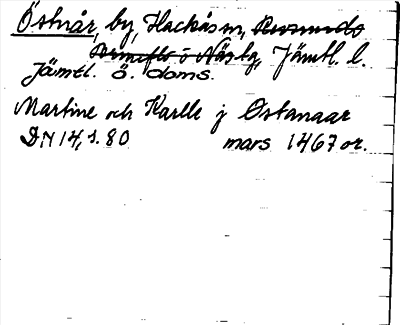 Östnår, by, Hackås sn, Revsunds
Brunflo o Näs tg, Jämtl. l.
Jämtl. ö. doms.
Martine och Karlle j Østanaar
DN 14, s. 80 mars 1467 or.